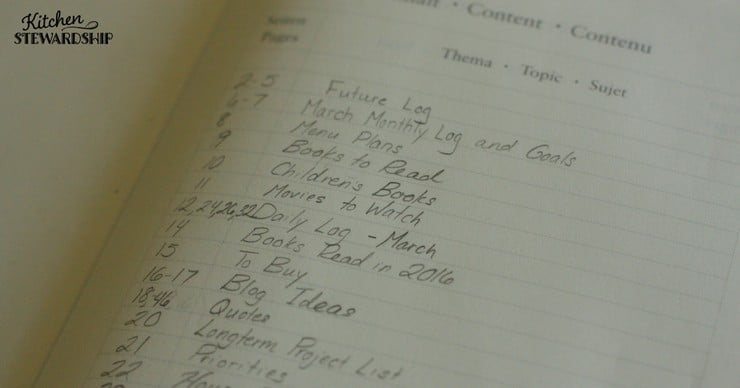 Kitchen
STEWARDSHIP
Content · Contenu
Seiten
Pages
Thema · Topic · Sujet
2-5 Future Log
6-7 March Monthly Log and Goals
8 Menu Plans
9 Books to Read
10 Children's Books
11 Movies to Watch
12,24,26,32 Daily Log - March
14 Books Read in 2016
15 To Buy
16-17 Blog Ideas
18,46 Quotes
20 Longterm Project List
21 Priorities
22